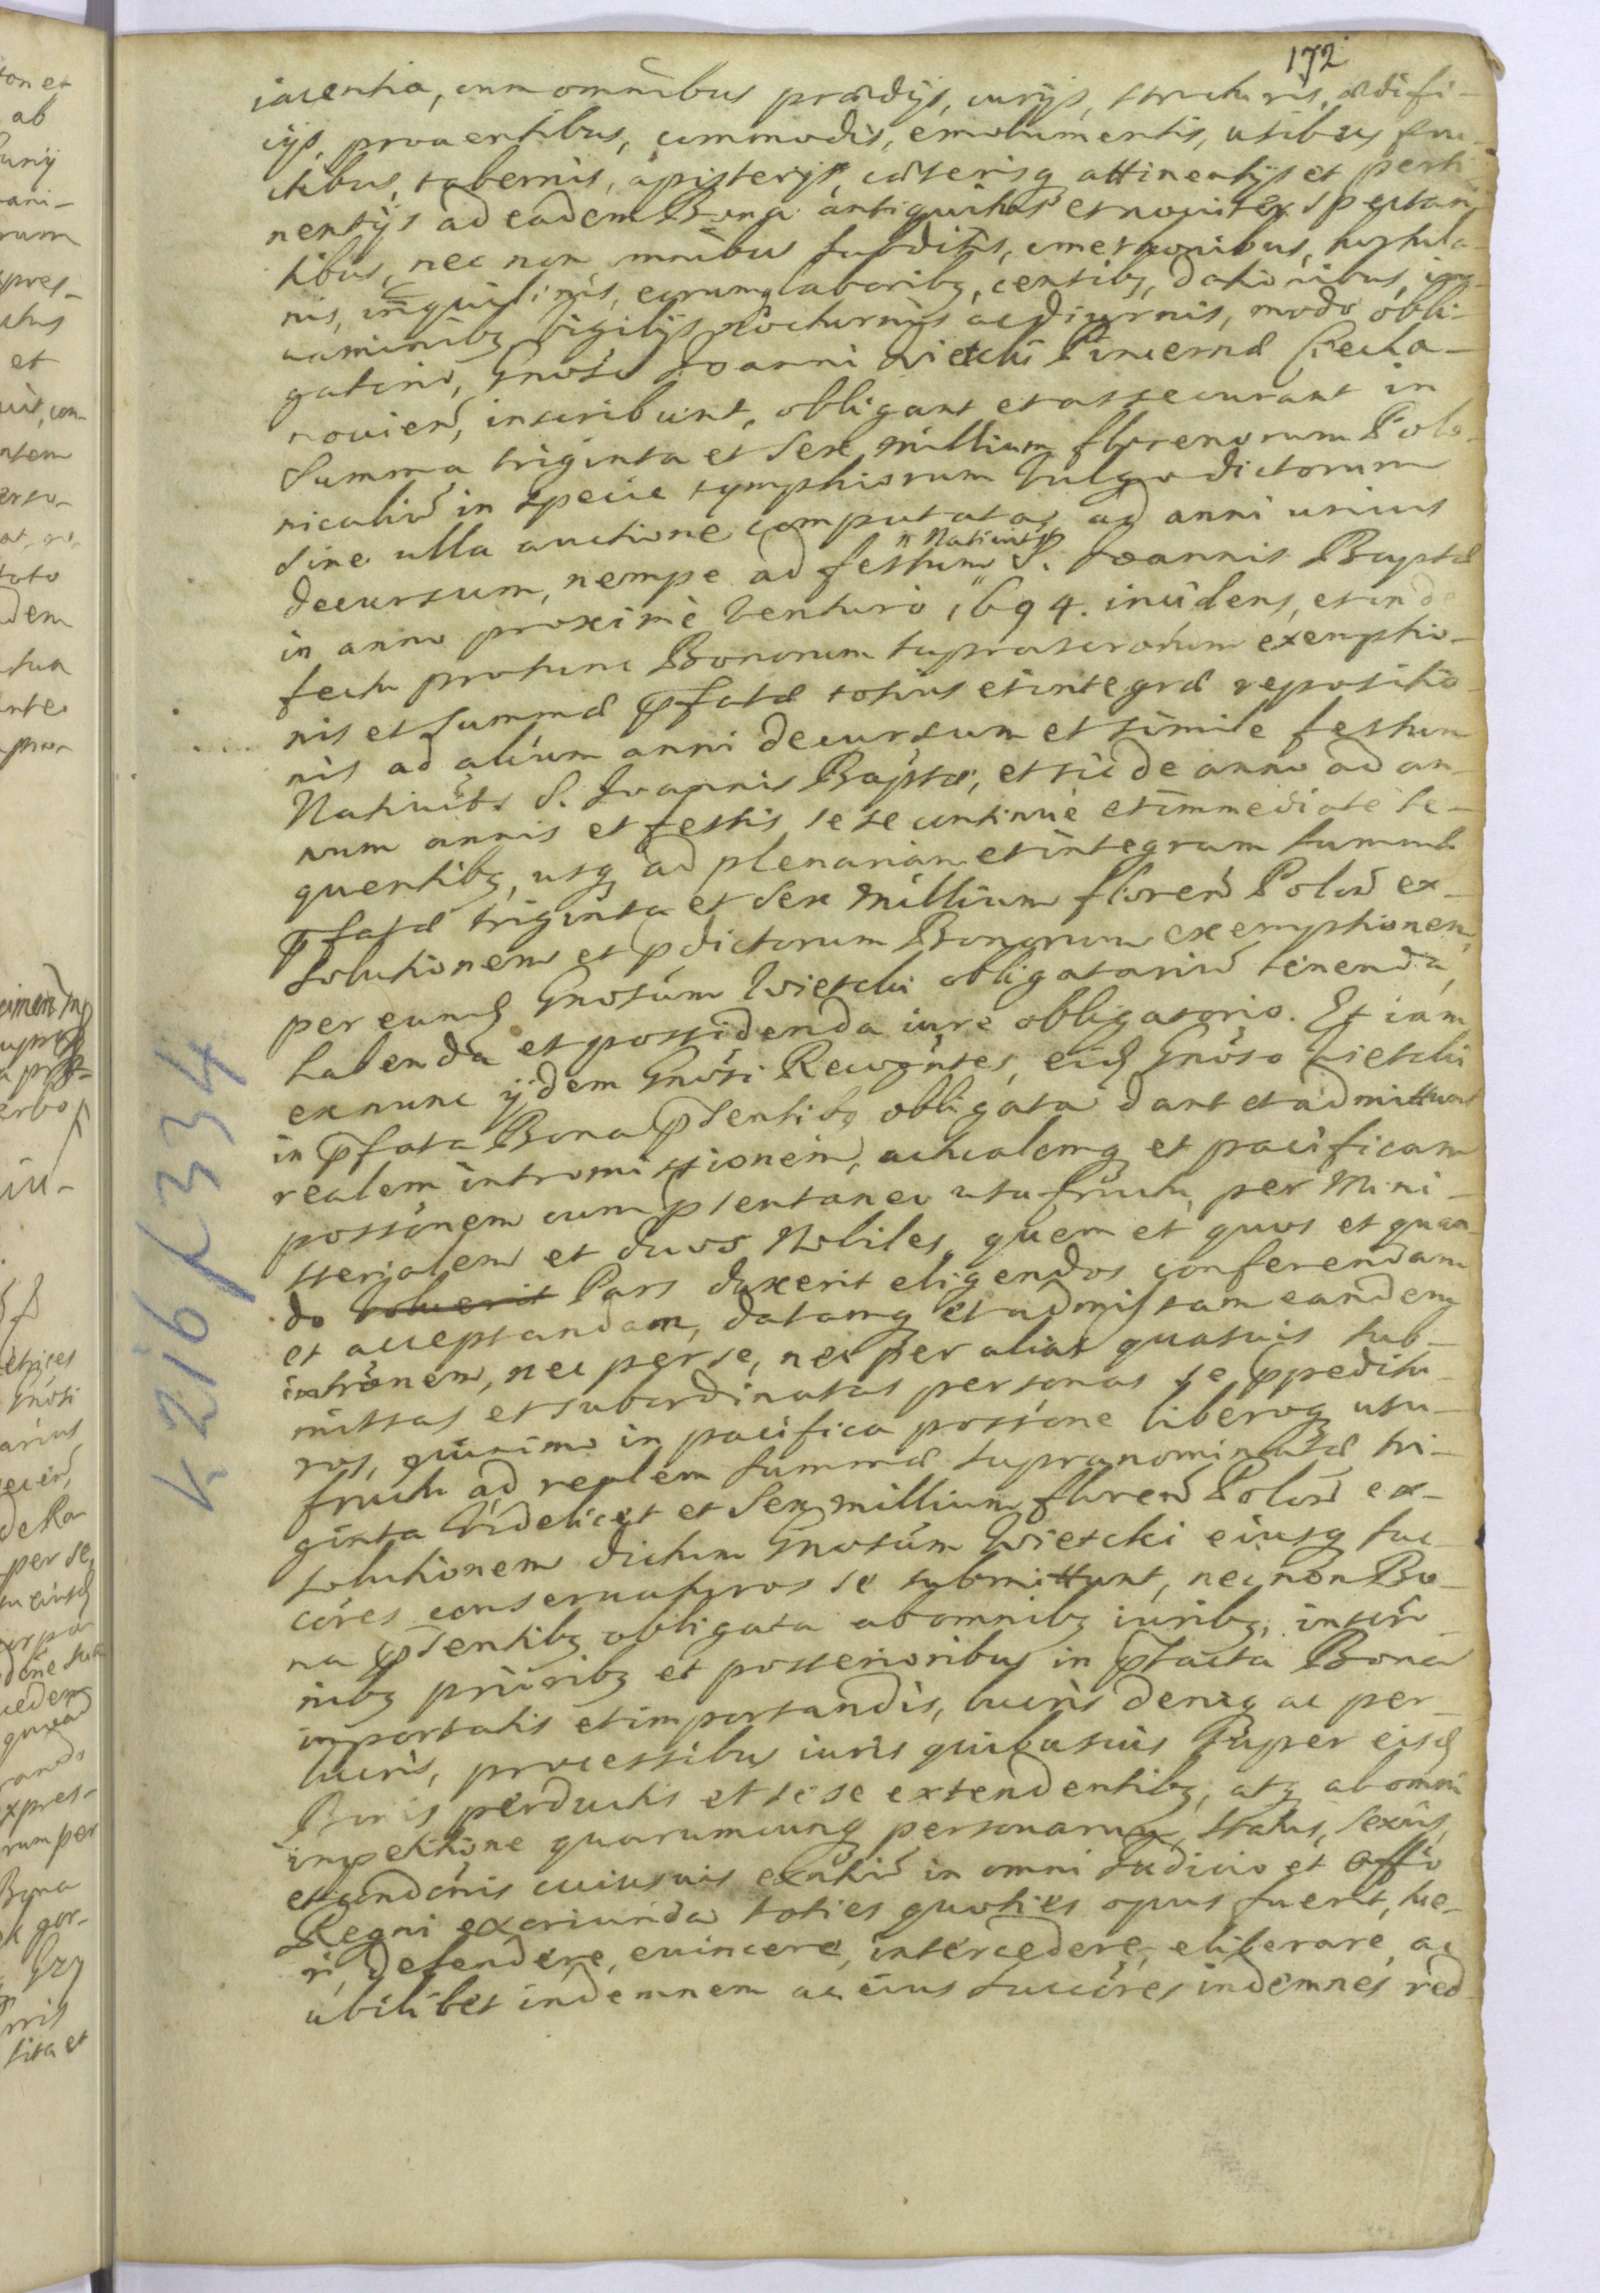 172
iacentia, cum omnibus prædijs, curijs, structuris, ædifi-
cijs, prouentibus, commodis, emolumentis, usibus fru-
ctibus, tabernis, apisterijs, cæterisq attinentijs et perti-
nentijs ad eadem Bona antiquitus et nouiter spectan-
tibus, nec non omnibus subditis, cmethonibus, hortula-
nis, inquilinis, eorumq laboribq, censibq, dationibus,
uaminibq vigilijs nocturnis ac diurnis, modo obli-
gatorio, Gnoso Joanni Wietcki Pincernæ Ciecha-
nouien, inscribunt, obligant et assecurant in
Summa triginta et Sex millium florenorum Polo-
nicaliu in specie tymphiorum Vulgo dictorum
sine ulla auctione computatas ad anni unius
decursum, nempe ad festum Natiuits S. Joannis Baptæ
in anno proximè Venturo 1694. incidens, et in de-
fectu protunc Bonorum suprascriptorum exemptio-
nis et summæ pfatæ totius et integræ repositio-
nis ad alium anni decursum et simile festum
Natiuits S. Joannis Baptæ, et sic de anno ad an-
num annis et festis se se continuè et immediatè se-
quentibq, usq ad plenariam et integram summæ
pfatæ triginta et Sex Millium floren Polon ex-
solutionem et pdictorum Bonorum exemptionem,
per eund Gnosum Wietcki obligatoriu tenenda,
habenda et possidenda iure obligatorio. Et iam
exnunc ijdem Gnosi Recogntes, eid Gnoso Wietcki
in pfata Bona psentibq obligata dant et admittunt
realem intromissionem, actualemq et pacificam
possonem cum psentaneo usufructu, per Mini-
sterialem et duos Nobiles, quem et quos et quan-
do voluerit Pars duxerit eligendos conferendam
et acceptandam, datamq et admissam eandemq
intronem, nec per se, nec per alias quasuis sub-
missas et subordinatas personas se ppeditu-
ros, quinimo in pacifica possione liberoq usu-
fructu ad realem summæ supranominatæ tri-
ginta Videlicet et Sex millium floren Polon ex-
solutionem dictum Gnosum Wietcki eiusq suc-
cores conseruaturos se submittunt, nec non Bo-
na psentibq obligata ab omnibq iuribq, inscri-
nibq prioribq et posterioribus in ptacta Bona
importatis et importandis, lucris deniq ac per-
lucris, processibus iuris quibusuis super eisd
Bonis perductis et sese extendentibq, atq ab omni
impetitione quarumcunq personarum, status, sexus,
et condonis cuiusuis existiu in omni Iudicio et Offo
Regni exoriunda toties quoties opus fuerit, tue-
ri, defendere, euincere, intercedere, eliberare, ac
ubilibet indemnem ac eius succores indemnes red-
K 216 K 334